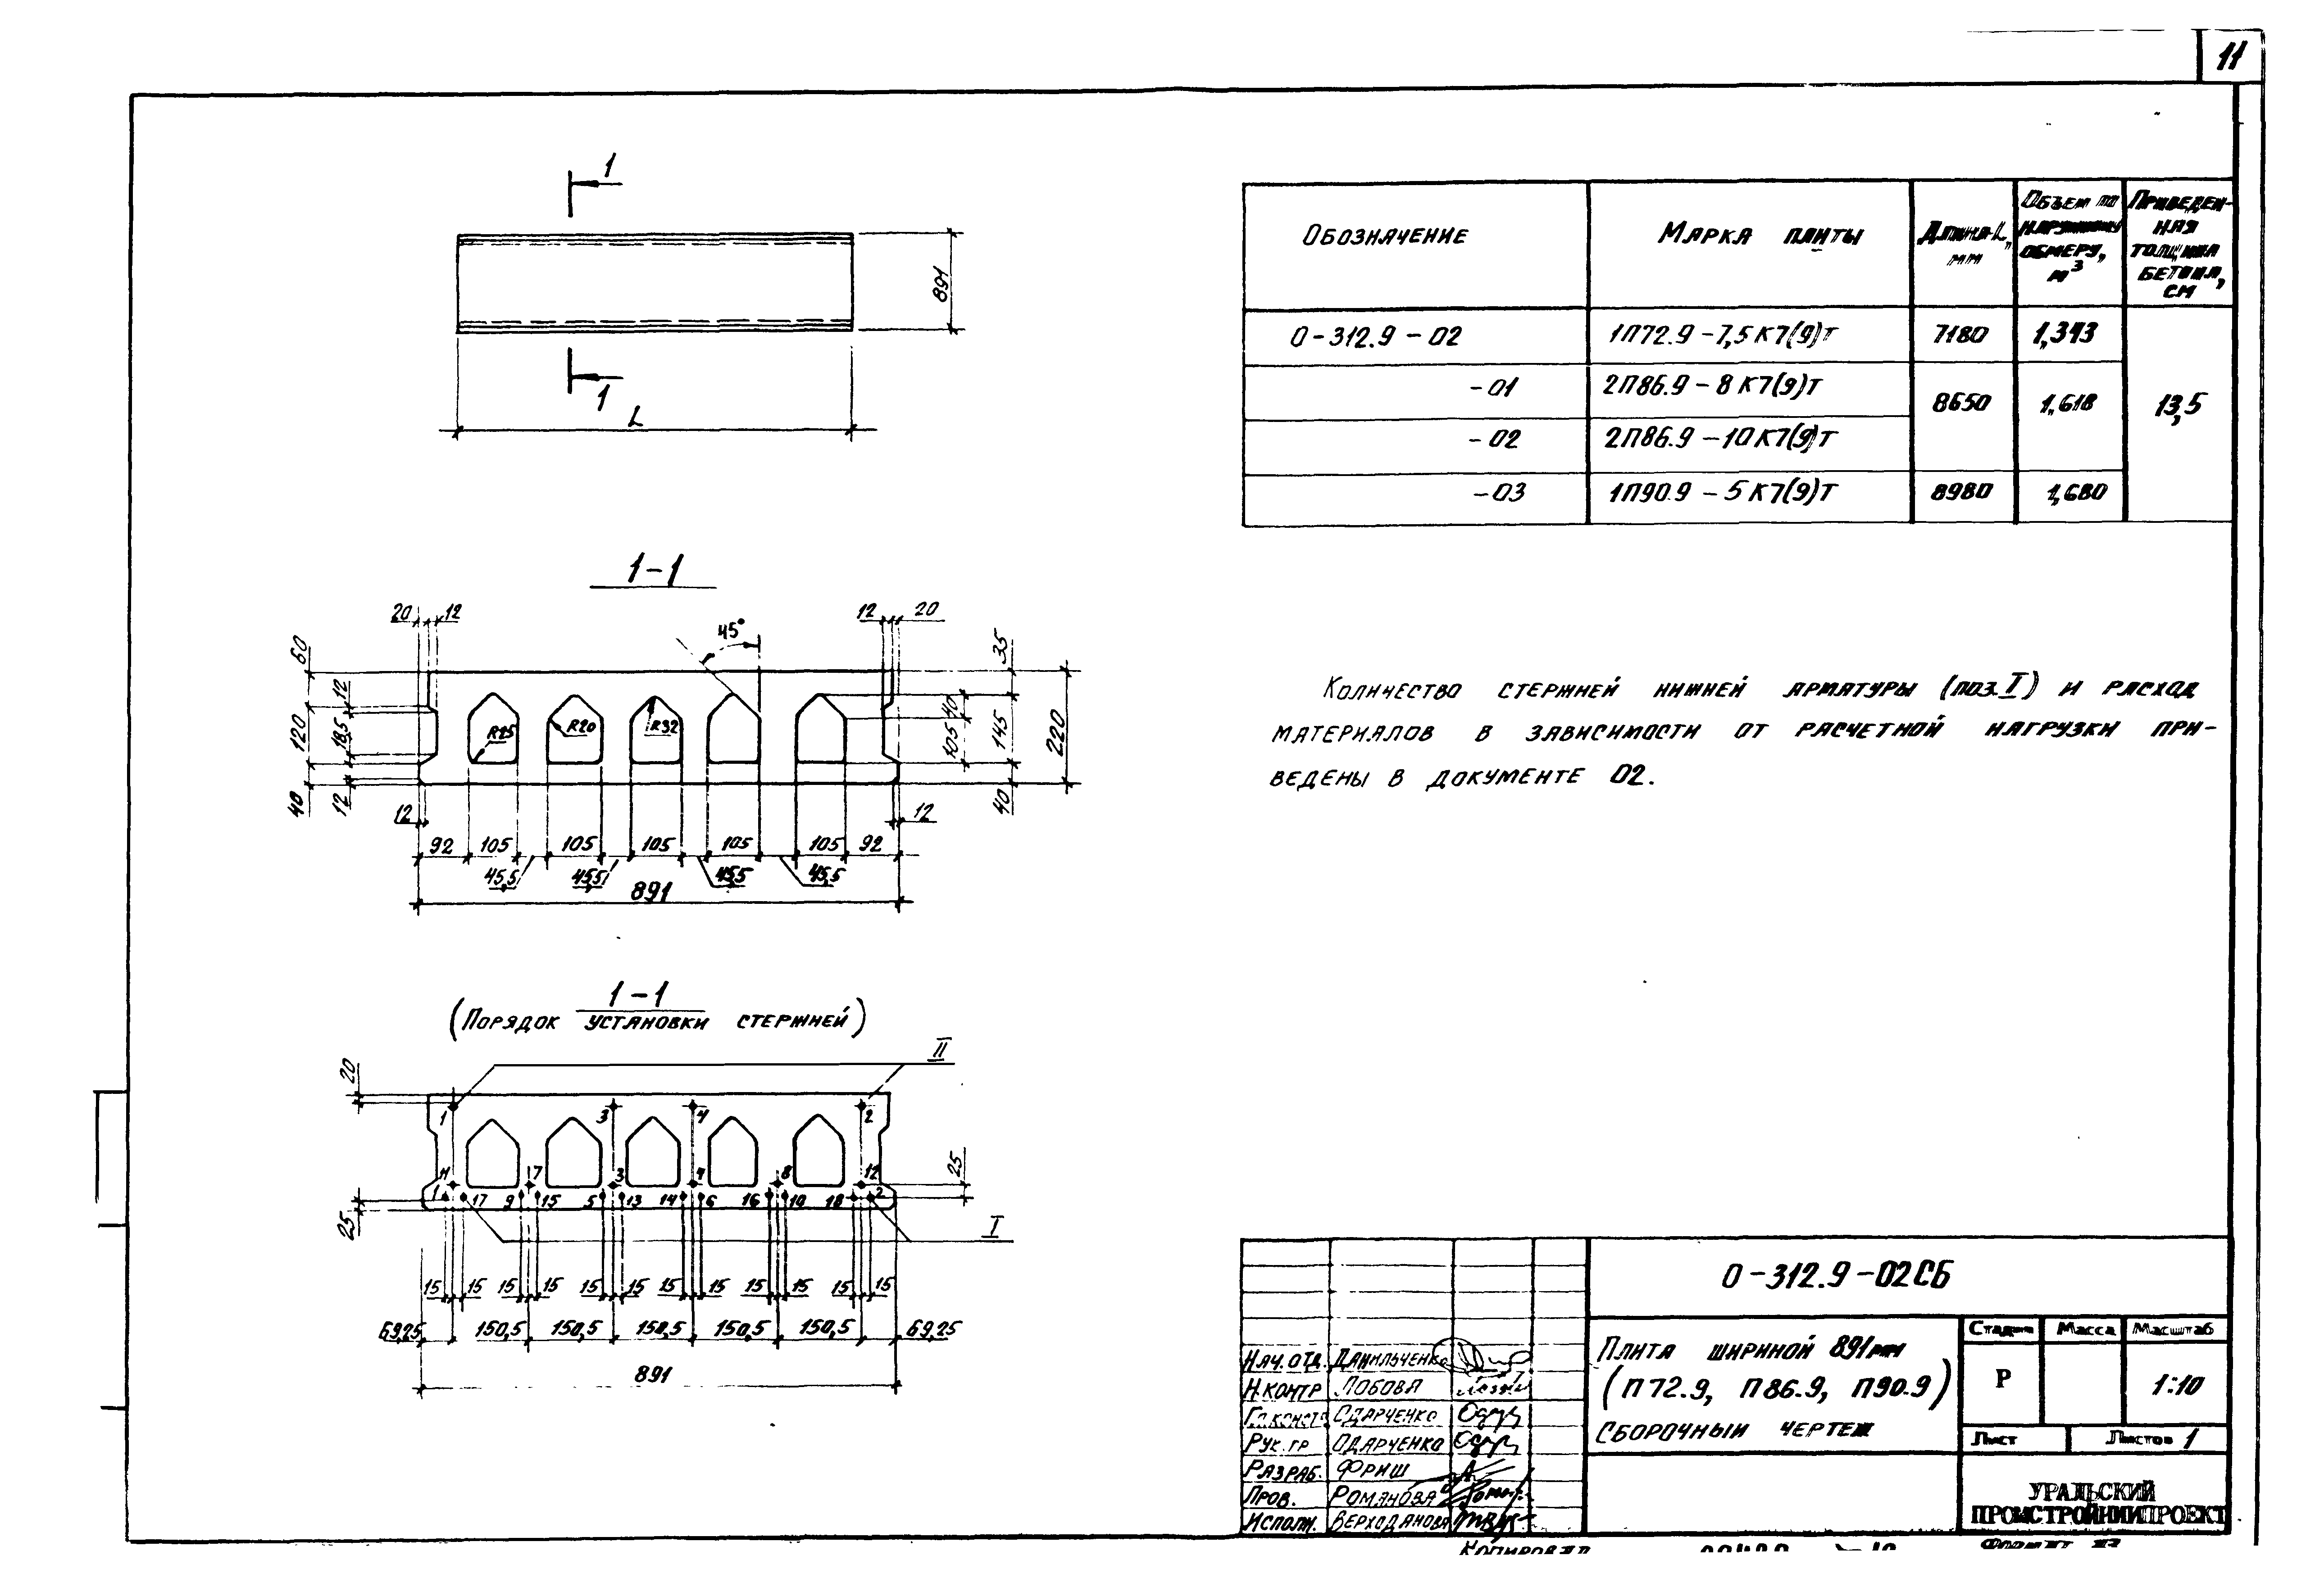 11
1
891
1
L
Обозначение
Марка плиты
Длина L, мм
Объем по наружному обмеру, м3
Приведен-
ная
толщина
бетона,
см
О-312.9-02 1П72.9-7,5К7(9)Т 7180
-01 2П86.9-8К7(9)Т
8650 1,618 13,5
-02 2П86.9-10К7(9)Т
-03 1П90.9-5К7(9)Т 8980 1,680
1-1
20 12 12 20
45°
60 35
12 40
120 18,5 R25 R20 R32 105 145 220
40 12 40
12 12
92 105 105 105 105 105 92
45,5 45,5 45,5 45,5
891
Количество стержней нижней арматуры (поз. I) и расход
материалов в зависимости от расчетной нагрузки при-
ведены в документе 02.
1-1
(Порядок установки стержней)
II
20
1 3 4 2
11 7 3 4 8 12 25
1 17 9 15 5 13 14 6 16 10 18 2
25
I
15 15 15 15 15 15 15 15 15 15 15 15
69,25 150,5 150,5 150,5 150,5 150,5 69,25
891
О-312.9-02СБ
Плита шириной 891мм
(П72.9, П86.9, П90.9)
Сборочный чертеж
Стадия Масса Масштаб
Р 1:10
Лист Листов 1
Нач. отд. Данильченко
Н.контр Лобова
Гл.констр Одарченко
Рук. гр Одарченко
Разраб. Фриш
Пров. Романова
Исполн. Верходанова
УРАЛЬСКИЙ
ПРОМСТРОЙНИИПРОЕКТ
Копировал
Формат